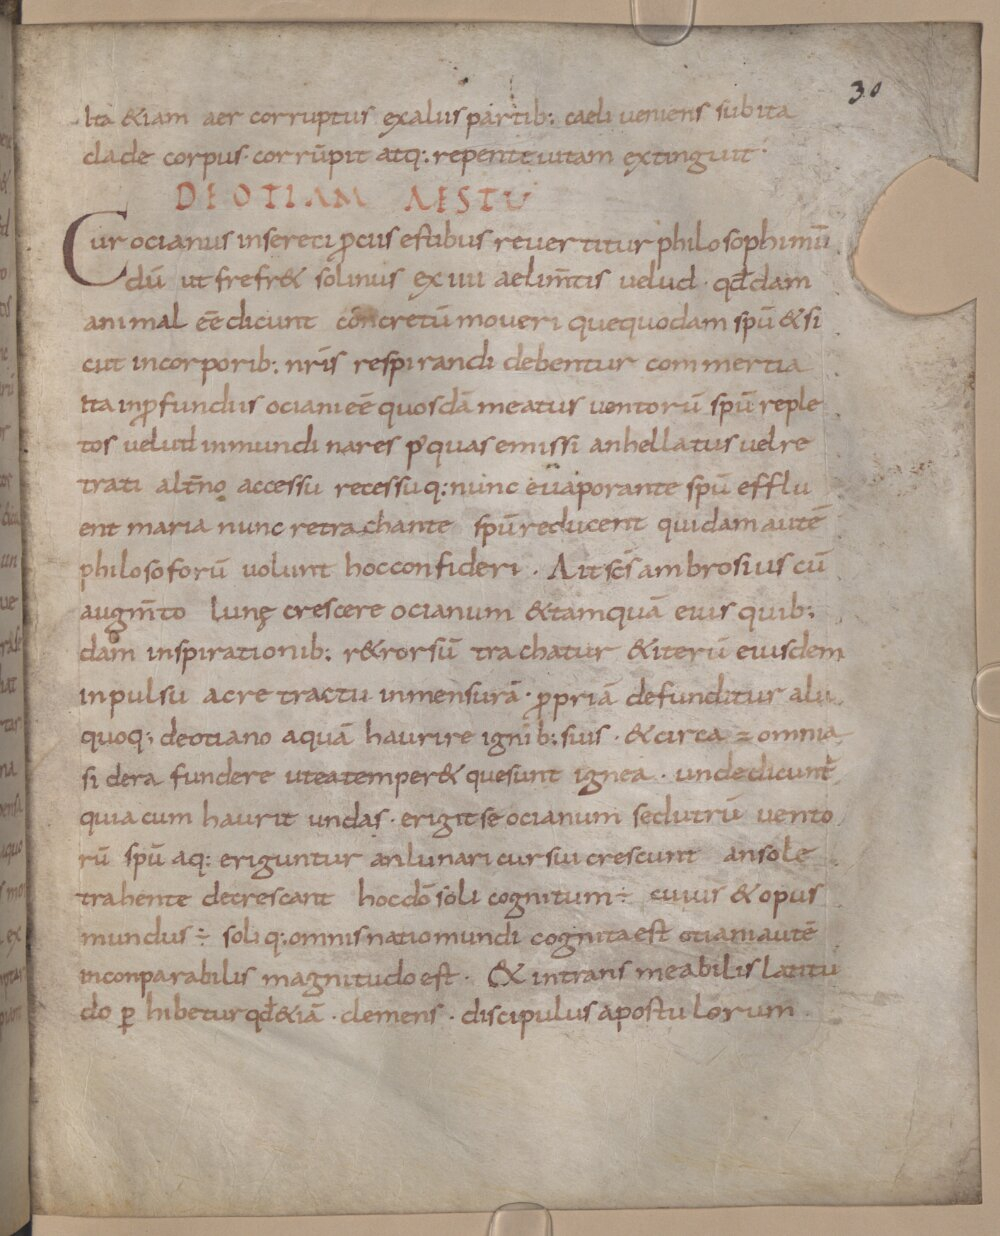 30
Ita &iam aer corruptus exaliis partib: caeli veniens subita
clade corpus · corrūpit atq: repente uitam extinguit ·
DEOTIAM AESTU
Cur ocianus insereci ꝓcius estibus reuertitur philosophi mū
dū ut frefr& solinus ex iiii aelim̄tis velud · qđdam
animal eē dicunt concretū moveri quequodam spū & si
cut incorporib: nr̄is respirandi debentur commertia
Ita inꝓfundiis ociani eē quosdā meatus ventorū spū reple
tos velud inmundi nares ꝑquas emissi anhellatus vel re
trati alt̄no accessu recessuq: nunc evaporante spū efflu
ent maria nunc retrachante spū reducent quidam autē
philosoforū volunt hoc confideri · Ait sc̄s ambrosius cū
augm̄to lunę crescere ocianum & tamquā eius quib:
dam inspirationib: r&rorsū trachatur & iterū eiusdem
inpulsu acre tractu inmensurā · ꝓpriā defunditur alii
quoq; deotiano aquā haurire ignib: suis · & circa omnia
sidera fundere utea temper& quesunt ignea · unde dicunt
quia cum haurit undas · erigit se ocianum seclutrū vento
rū spū aq: eriguntur anlunari cursui crescunt an sole
trahente decrescant hoc dō soli cognitum ÷ cuius & opus
mundus ÷ soli q: omnis natio mundi cognita est otiani autē
inconparabilis magnitudo est · & intrans meabilis latitu
do ꝑhibetur qđ &iā · clemens · discipulus apostulorum